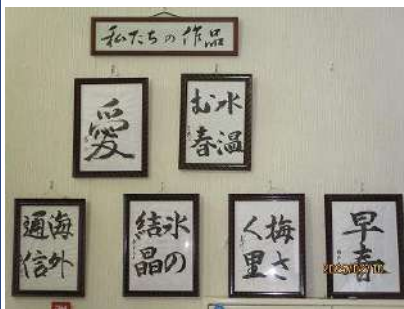 私たちの作品
愛
水温
む春
海外
通信
氷の
結晶
梅さ
く里
早春